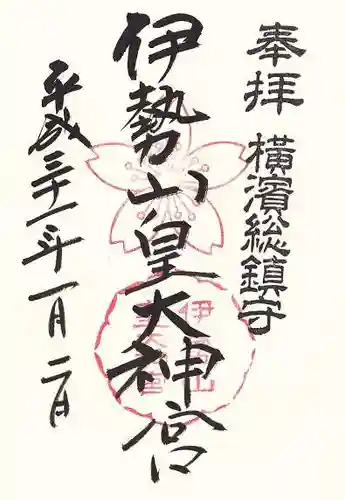 奉拝
横濱総鎮守
伊勢山皇大神宮
平成三十一年一月二日